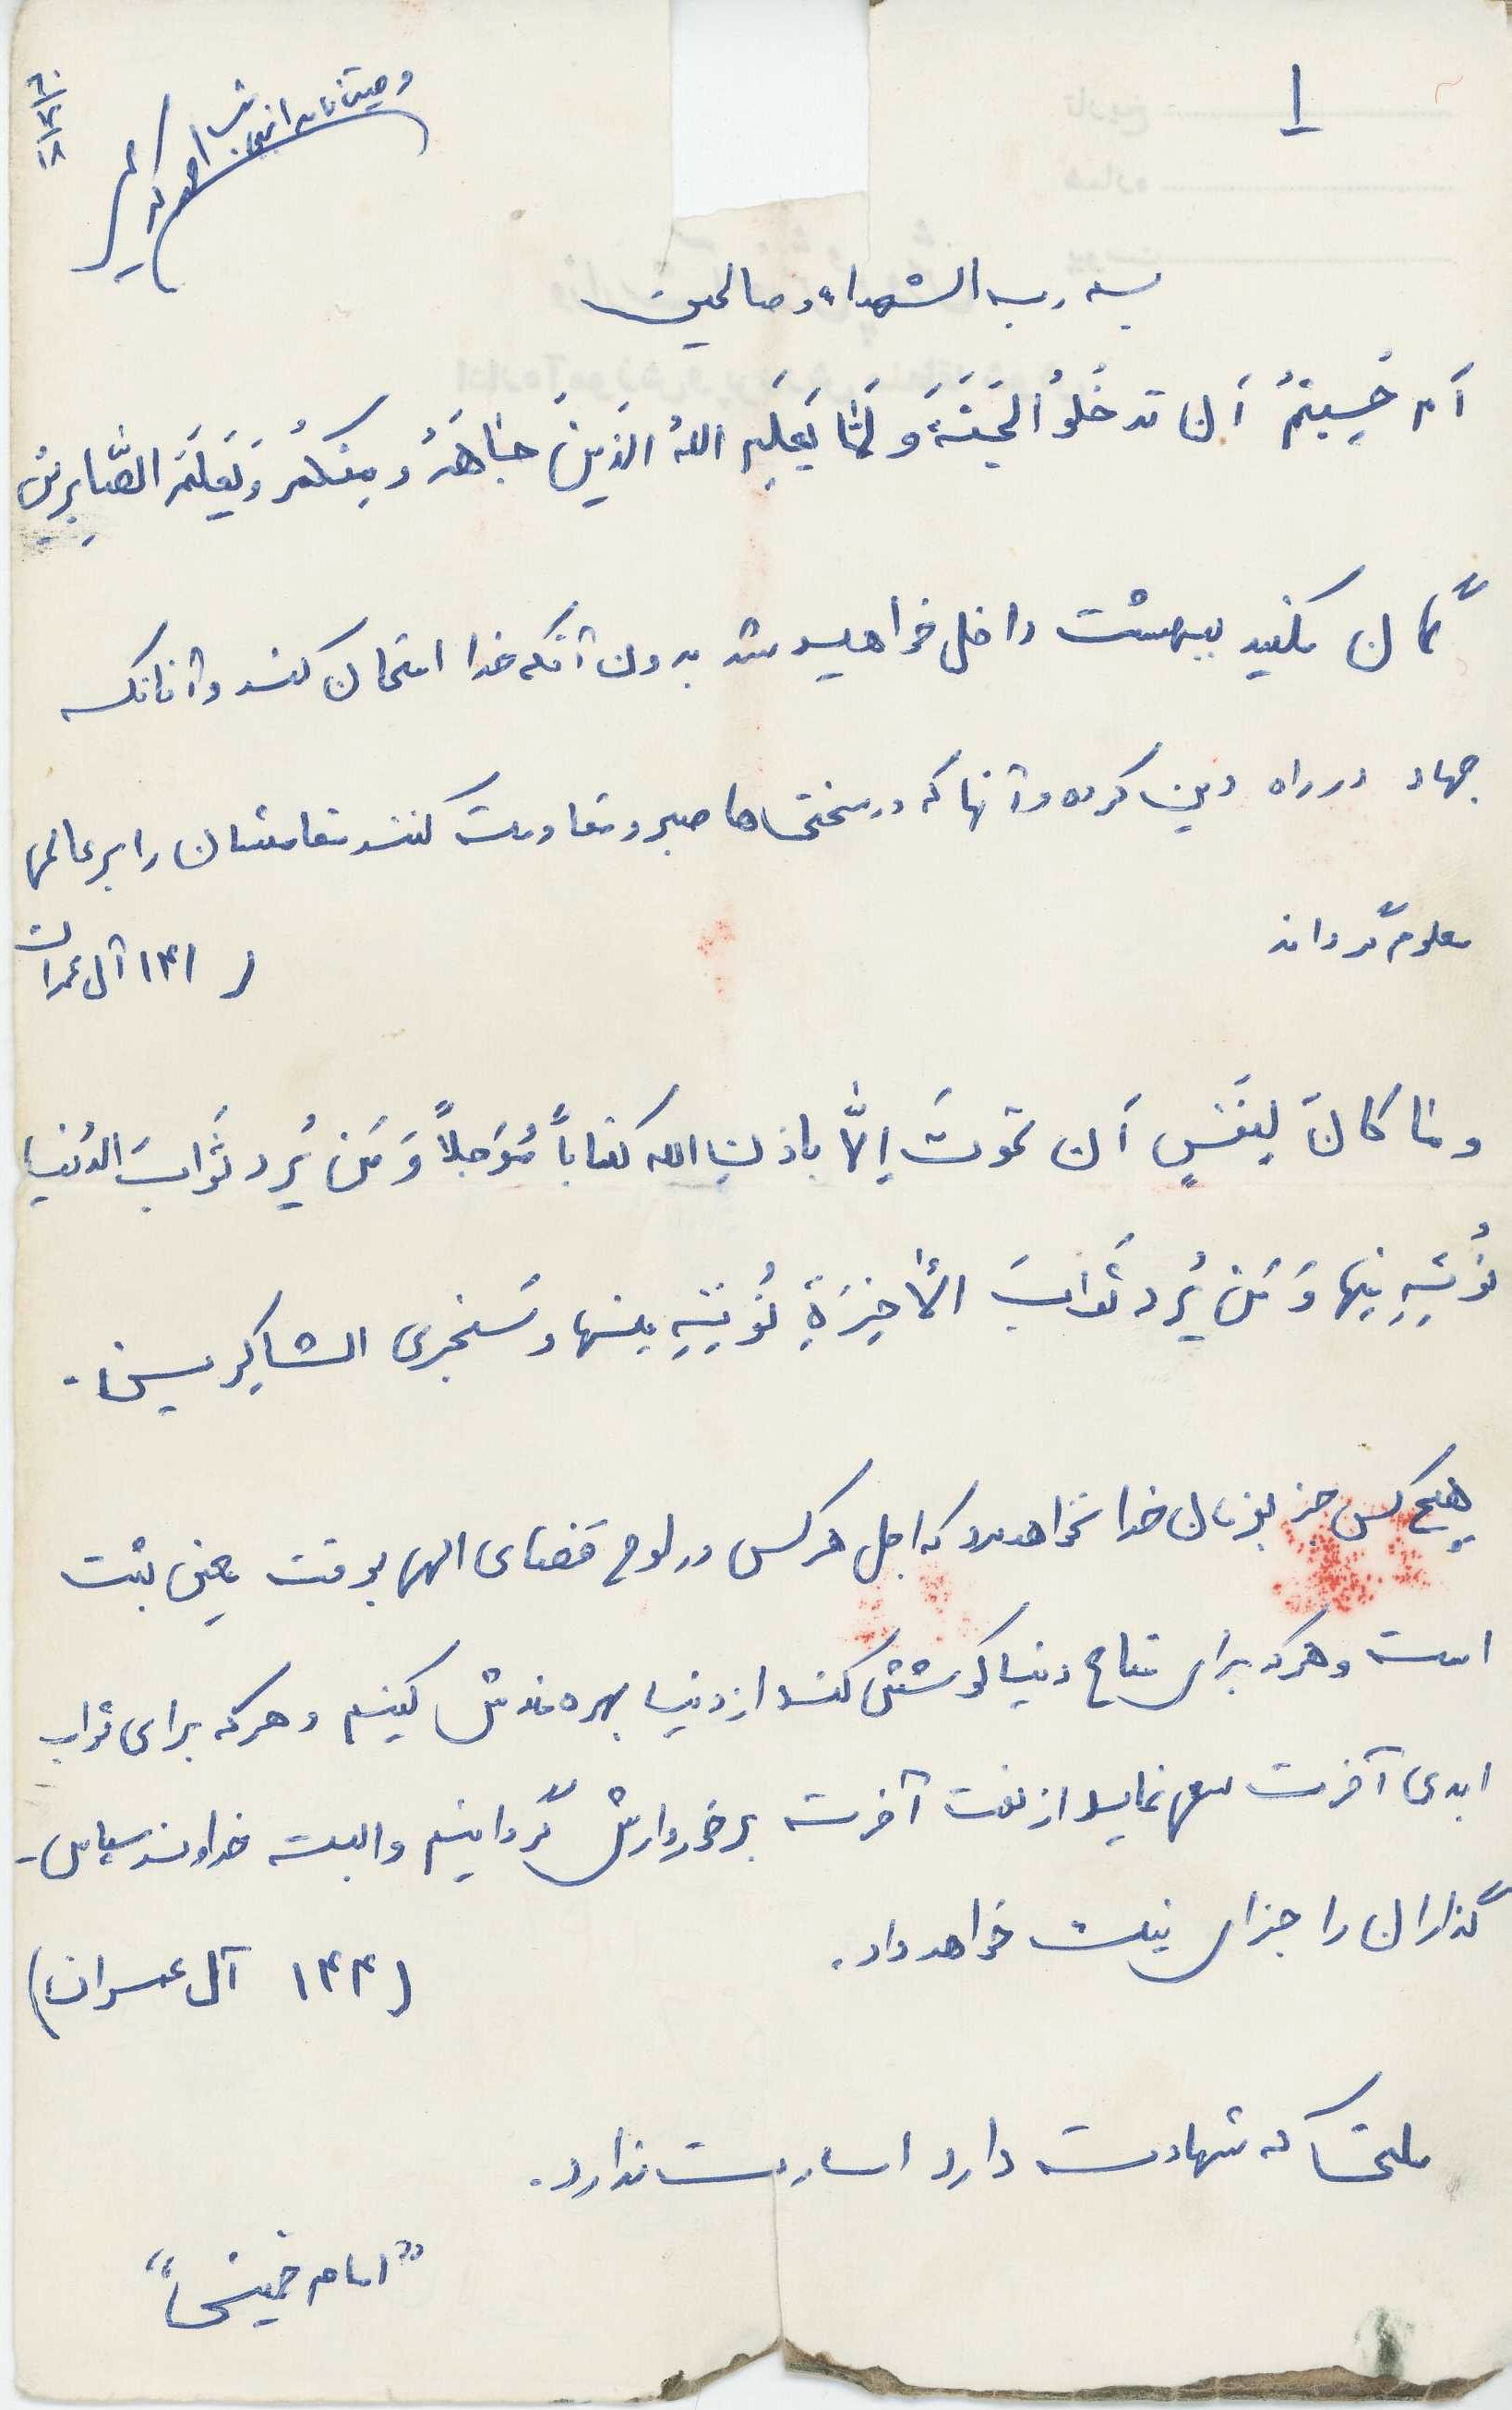 ۱
وصیت نامه
بسمه رب الشهداء و صالحین
اَم حَسِبتُم اَن تدخُلوُا الجَنَّةَ و لَمّا یَعلَمِ اللهُ الذَینَ جٰاهَدُو مِنکُم وَ یَعلَمَ الصّٰابِرینَ
گمان مکنید ببهشت داخل خواهید شد بدون آنکه خدا امتحان کند و آنانکه
جهاد در راه دین کرده و آنها که در سختی ها صبر و مقاومت کنند مقامشان را بر عالمی
معلوم گرداند
( ۱۴۱ آل عمران
و مٰا کانَ لِنَفسٍ اَن تموتَ اِلّا باذنِ الله کتاباً مُؤَجلاً وَ مَن یُرِد ثَوابَ الدُنیا
نُؤتِهِ مِنها وَ مَن یُرِد ثَوابَ الأخِرَةِ نُؤتِهِ مِنها و سَنجزی الشاکِرین.
هیچ کس جز بفرمان خدا نخواهد مرد که اجل هر کس در لوح قضای الهی بوقت معین ثبت
است و هر که برای متاع دنیا کوشش کند از دنیا بهره مندش کنیم و هر که برای ثواب
ابدی آخرت سعی نماید از نعمت آخرت برخوردارش گردانیم و البته خداوند سپاس-
گذاران را جزای نیک خواهد داد.
(۱۴۴ آل عمران)
ملتی که شهادت دارد اسارت ندارد.
"امام خمینی"